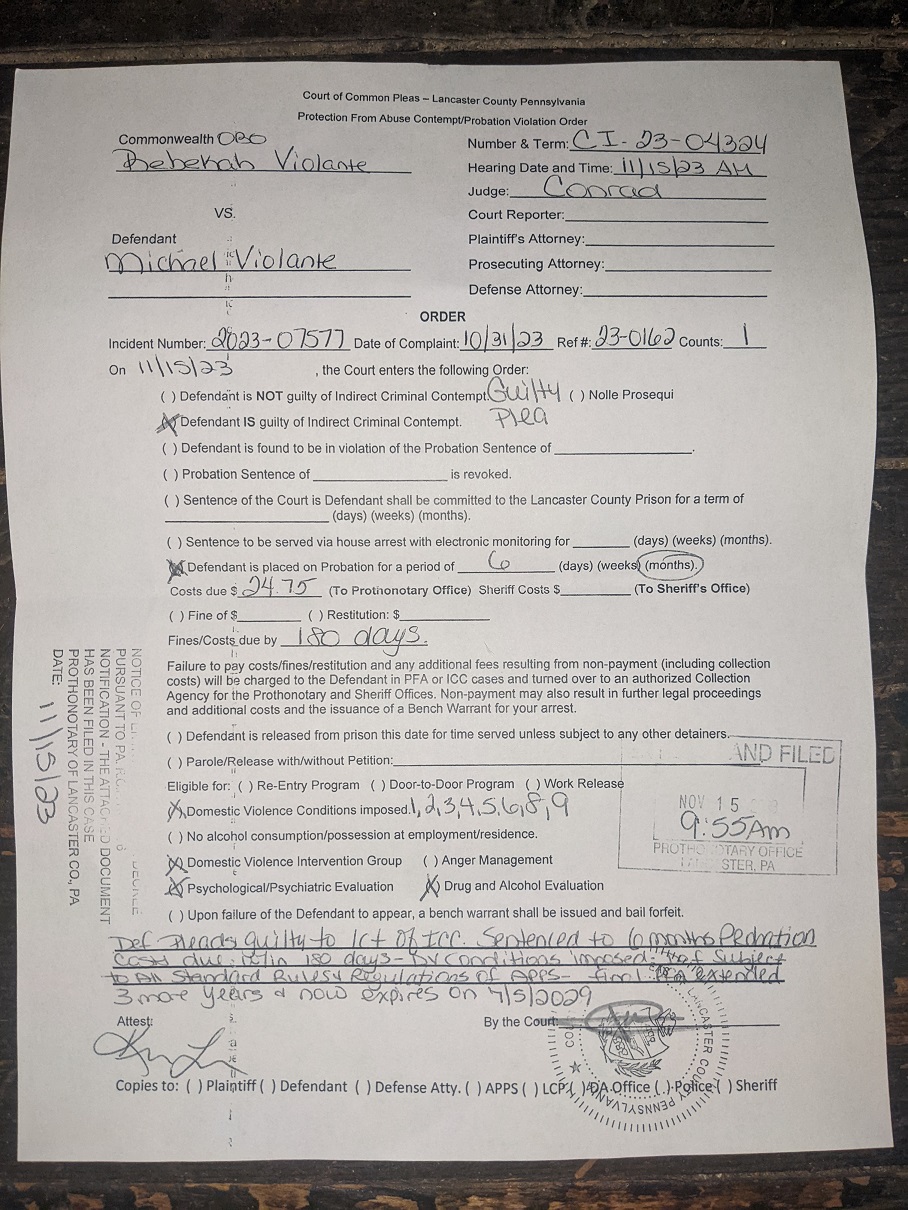 Court of Common Pleas – Lancaster County Pennsylvania
Protection From Abuse Contempt/Probation Violation Order
Commonwealth OBO
Rebekah Violante
Number & Term: CI-23-04324
Hearing Date and Time: 11/15/23 AM
Judge: Conrad
VS.
Court Reporter:
Defendant
Michael Violante
Plaintiff's Attorney:
Prosecuting Attorney:
Defense Attorney:
ORDER
Incident Number: 2023-07577 Date of Complaint: 10/31/23 Ref #: 23-0162 Counts: 1
On 11/15/23 , the Court enters the following Order:
( ) Defendant is NOT guilty of Indirect Criminal Contempt. Guilty Plea ( ) Nolle Prosequi
(X) Defendant IS guilty of Indirect Criminal Contempt.
( ) Defendant is found to be in violation of the Probation Sentence of
( ) Probation Sentence of is revoked.
( ) Sentence of the Court is Defendant shall be committed to the Lancaster County Prison for a term of
(days) (weeks) (months).
( ) Sentence to be served via house arrest with electronic monitoring for (days) (weeks) (months).
(X) Defendant is placed on Probation for a period of 6 (days) (weeks) (months).
Costs due $ 24.75 (To Prothonotary Office) Sheriff Costs $ (To Sheriff's Office)
( ) Fine of $ ( ) Restitution: $
Fines/Costs due by 180 days.
Failure to pay costs/fines/restitution and any additional fees resulting from non-payment (including collection
costs) will be charged to the Defendant in PFA or ICC cases and turned over to an authorized Collection
Agency for the Prothonotary and Sheriff Offices. Non-payment may also result in further legal proceedings
and additional costs and the issuance of a Bench Warrant for your arrest.
( ) Defendant is released from prison this date for time served unless subject to any other detainers.
( ) Parole/Release with/without Petition:
Eligible for: ( ) Re-Entry Program ( ) Door-to-Door Program ( ) Work Release
(X) Domestic Violence Conditions imposed. 1,2,3,4,5,6,8,9
( ) No alcohol consumption/possession at employment/residence.
(X) Domestic Violence Intervention Group ( ) Anger Management
(X) Psychological/Psychiatric Evaluation (X) Drug and Alcohol Evaluation
( ) Upon failure of the Defendant to appear, a bench warrant shall be issued and bail forfeit.
AND FILED
NOV 15
9:55AM
PROTHONOTARY OFFICE
LANCASTER, PA
NOTICE OF
PURSUANT TO PA.
NOTIFICATION - THE ATTACHED DOCUMENT
HAS BEEN FILED IN THIS CASE
PROTHONOTARY OF LANCASTER CO., PA
DATE: 11/15/23
Def Pleads guilty to 1ct of ICC. Sentenced to 6 months Probation
Costs due w/in 180 days - DV Conditions imposed - Def Subject
to All Standard Rules & Regulations of APPS - final PFA extended
3 more years & now expires on 7/5/2029
Attest:
By the Court:
Copies to: ( ) Plaintiff ( ) Defendant ( ) Defense Atty. ( ) APPS ( ) LCP ( ) DA Office ( ) Police ( ) Sheriff
LANCASTER COUNTY PENNSYLVANIA